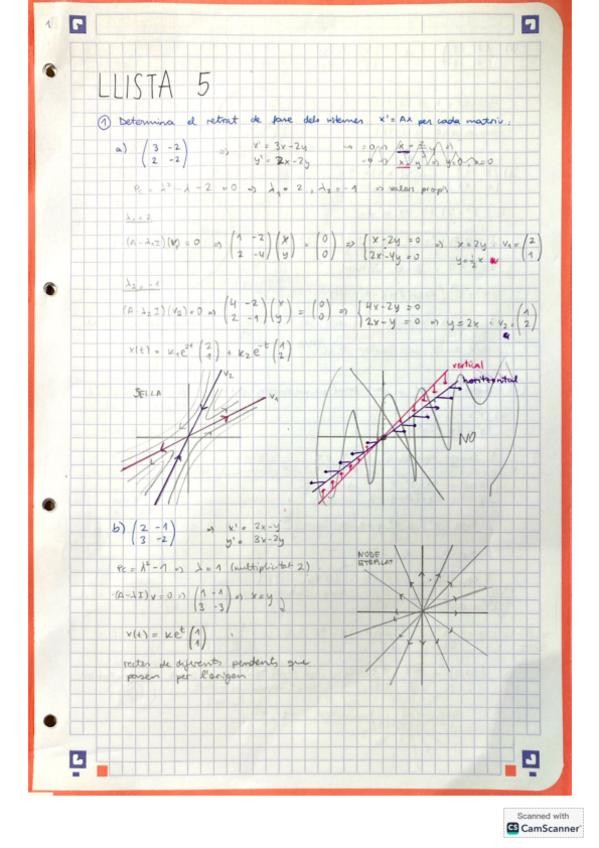 1
LLISTA 5
① Determina el retrat de fase dels sistemes x' = Ax per cada matriu:
a) (3 -2 / 2 -2) => x' = 3x-2y
y' = 2x-2y
Pc = λ² - λ - 2 = 0 => λ₁ = 2, λ₂ = -1 => valors propis
λ₁ = 2
(A-λ₁I)(v₁) = 0 => (1 -2 / 2 -4)(x / y) = (0 / 0) => {x-2y = 0 / 2x-4y = 0 => x = 2y : v₁ = (2 / 1)
y = ½x
λ₂ = -1
(A-λ₂I)(v₂) = 0 => (4 -2 / 2 -1)(x / y) = (0 / 0) => {4x-2y = 0 / 2x-y = 0 => y = 2x : v₂ = (1 / 2)
x(t) = k₁e²ᵗ(2 / 1) + k₂e⁻ᵗ(1 / 2)
SELLA
v₂
v₁
vertical
horitzontal
NO
b) (2 -1 / 3 -2) => x' = 2x-y
y' = 3x-2y
Pc = λ²-1 => λ = 1 (multiplicitat 2)
(A-λI)v = 0 => (1 -1 / 3 -3) => x = y
x(t) = keᵗ(1 / 1)
rectes de diferents pendents que
passen per l'origen
NODE
ESTRELLAT
Scanned with
CS CamScanner